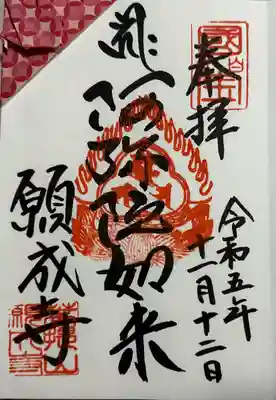 奉拝
令和五年
十一月十二日
阿弥陀如来
願成寺